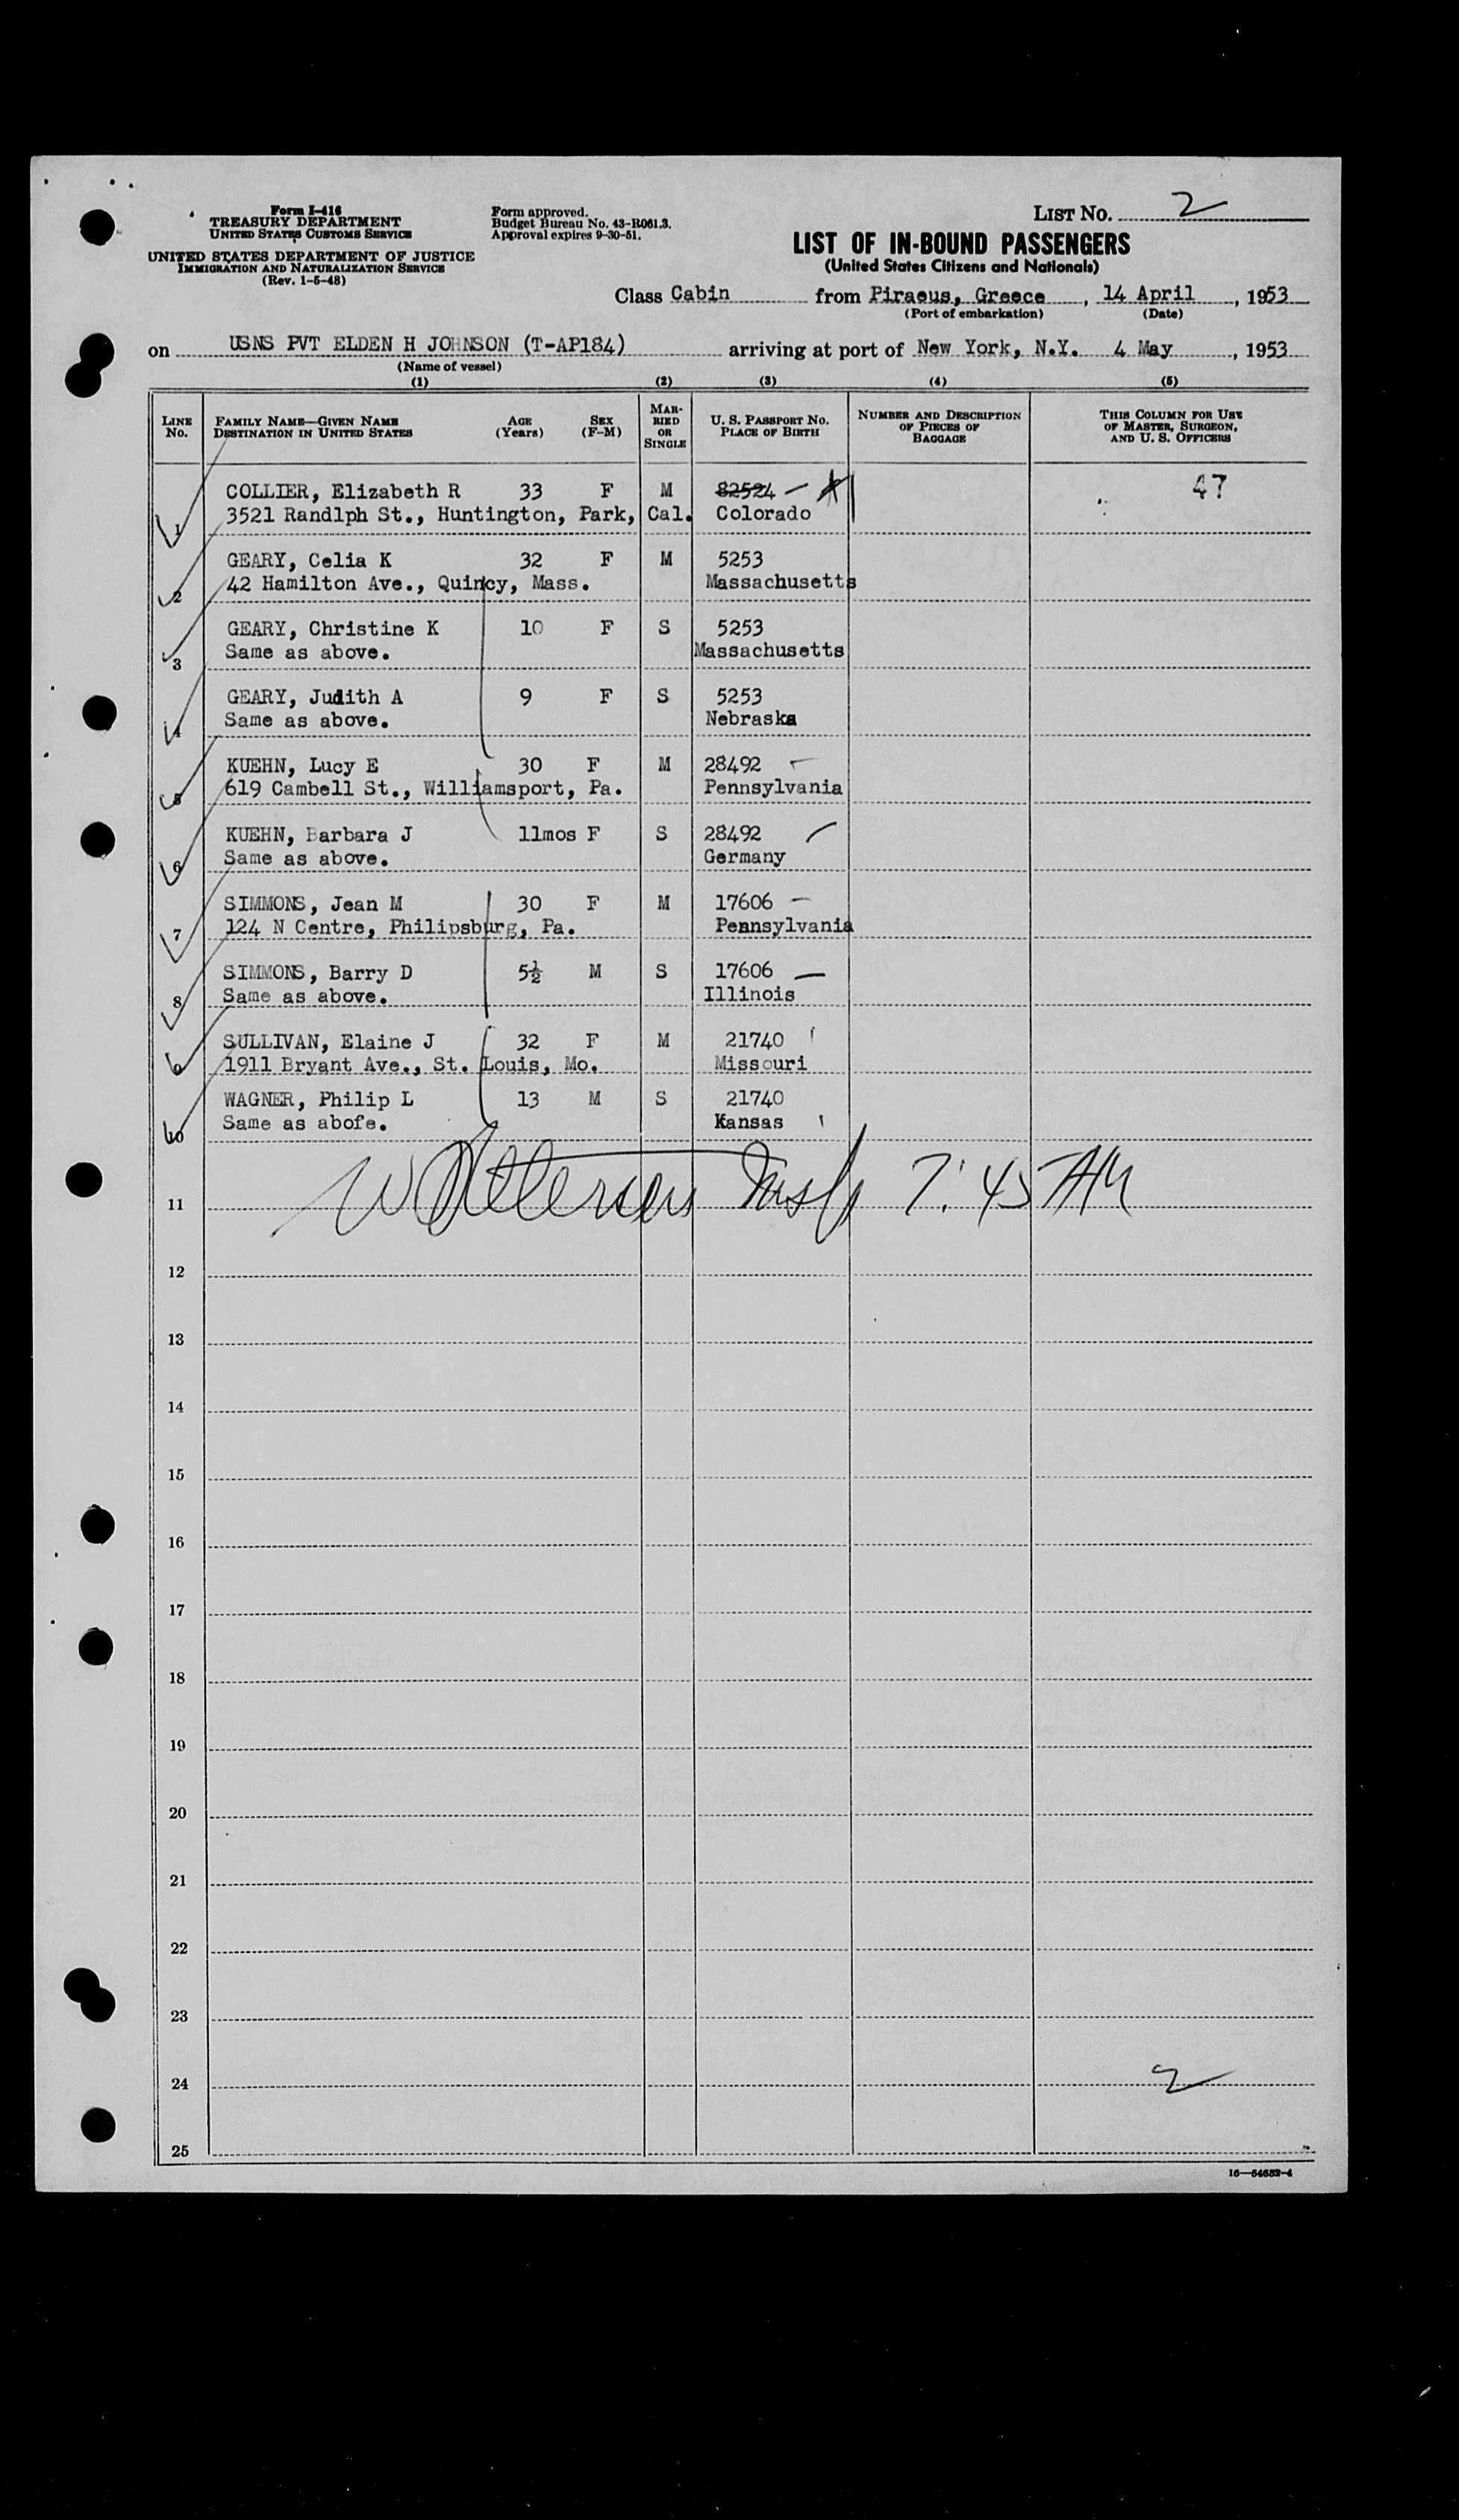 Form I-416
TREASURY DEPARTMENT
UNITED STATES CUSTOMS SERVICE
UNITED STATES DEPARTMENT OF JUSTICE
IMMIGRATION AND NATURALIZATION SERVICE
(Rev. 1-5-48)
Form approved.
Budget Bureau No. 43-R061.3.
Approval expires 9-30-51.
LIST NO. 2
LIST OF IN-BOUND PASSENGERS
(United States Citizens and Nationals)
Class Cabin from Piraeus, Greece, 14 April, 1953
(Port of embarkation) (Date)
on USNS PVT ELDEN H JOHNSON (T-AP184) arriving at port of New York, N.Y. 4 May, 1953
(Name of vessel)
(1) (2) (3) (4) (5)
LINE No. FAMILY NAME—GIVEN NAME DESTINATION IN UNITED STATES AGE (Years) SEX (F-M) MARRIED OR SINGLE U. S. PASSPORT NO. PLACE OF BIRTH NUMBER AND DESCRIPTION OF PIECES OF BAGGAGE THIS COLUMN FOR USE OF MASTER, SURGEON, AND U. S. OFFICERS
COLLIER, Elizabeth R 33 F M 82524 47
1 3521 Randlph St., Huntington, Park, Cal. Colorado
GEARY, Celia K 32 F M 5253
2 42 Hamilton Ave., Quincy, Mass. Massachusetts
GEARY, Christine K 10 F S 5253
3 Same as above. Massachusetts
GEARY, Judith A 9 F S 5253
4 Same as above. Nebraska
KUEHN, Lucy E 30 F M 28492
5 619 Cambell St., Williamsport, Pa. Pennsylvania
KUEHN, Barbara J 11mos F S 28492
6 Same as above. Germany
SIMMONS, Jean M 30 F M 17606
7 124 N Centre, Philipsburg, Pa. Pennsylvania
SIMMONS, Barry D 5½ M S 17606
8 Same as above. Illinois
SULLIVAN, Elaine J 32 F M 21740
9 1911 Bryant Ave., St. Louis, Mo. Missouri
WAGNER, Philip L 13 M S 21740
10 Same as abofe. Kansas
11 7:45 AM
12
13
14
15
16
17
18
19
20
21
22
23
24 2
25
16—54652-4